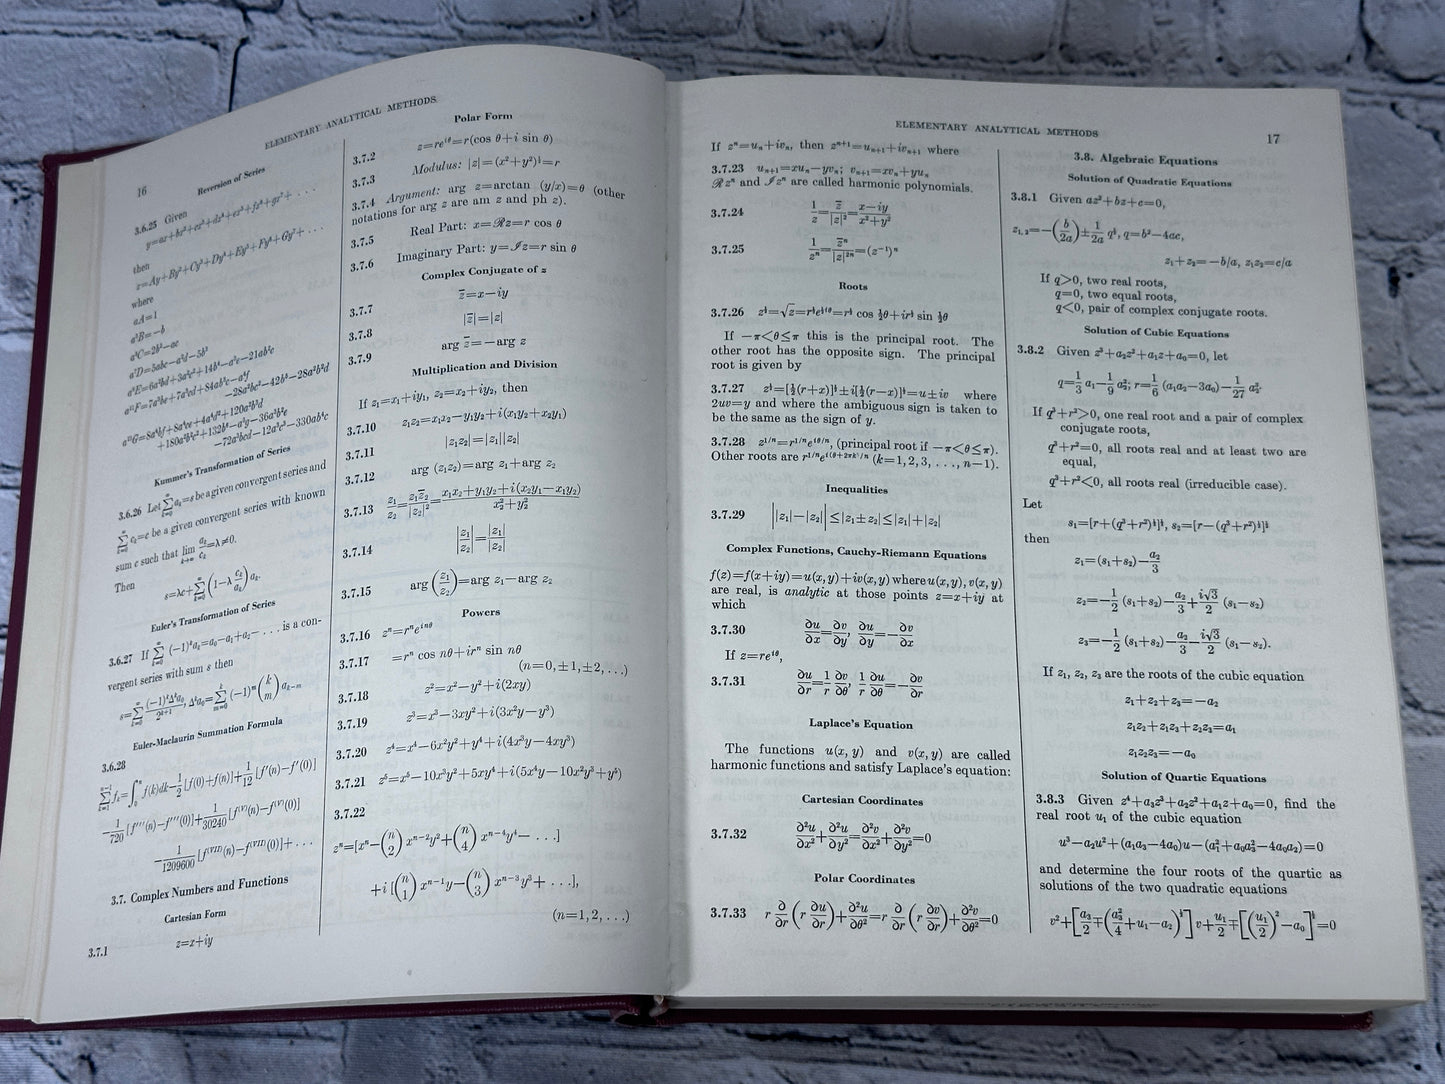 16
ELEMENTARY ANALYTICAL METHODS
Reversion of Series
3.6.25 Given
y=ax+bx²+cx³+dx⁴+ex⁵+fx⁶+gx⁷+ . . .
then
x=Ay+By²+Cy³+Dy⁴+Ey⁵+Fy⁶+Gy⁷+ . . .
where
aA=1
a³B=−b
a⁵C=2b²−ac
a⁷D=5abc−a²d−5b³
a⁹E=6a²bd+3a²c²+14b⁴−a³e−21ab²c
a¹¹F=7a³be+7a³cd+84ab³c−a⁴f
−28a²bc²−42b⁵−28a²b²d
a¹³G=8a⁴bf+8a⁴ce+4a⁴d²+120a²b³d
+180a²b²c²+132b⁶−a⁵g−36a³b²e
−72a³bcd−12a³c³−330ab⁴c
Kummer's Transformation of Series
3.6.26 Let ∑_{k=0}^{∞} a_k=s be a given convergent series and
∑_{k=0}^{∞} c_k=c be a given convergent series with known
sum c such that lim_{k→∞} a_k/c_k=λ≠0.
Then
s=λc+∑_{k=0}^{∞} (1−λ c_k/a_k) a_k.
Euler's Transformation of Series
3.6.27 If ∑_{k=0}^{∞} (−1)^k a_k=a₀−a₁+a₂− . . . is a con-
vergent series with sum s then
s=∑_{k=0}^{∞} (−1)^k Δ^k a₀/2^{k+1}, Δ^k a₀=∑_{m=0}^{k} (−1)^m (k m) a_{k−m}
Euler-Maclaurin Summation Formula
3.6.28
∑_{k=1}^{n−1} f_k=∫₀ⁿ f(k)dk−1/2 [f(0)+f(n)]+1/12 [f′(n)−f′(0)]
−1/720 [f′′′(n)−f′′′(0)]+1/30240 [f^{(V)}(n)−f^{(V)}(0)]
−1/1209600 [f^{(VII)}(n)−f^{(VII)}(0)]+ . . .
3.7. Complex Numbers and Functions
Cartesian Form
3.7.1 z=x+iy
Polar Form
3.7.2 z=re^{iθ}=r(cos θ+i sin θ)
3.7.3 Modulus: |z|=(x²+y²)^{½}=r
3.7.4 Argument: arg z=arctan (y/x)=θ (other
notations for arg z are am z and ph z).
3.7.5 Real Part: x=ℛz=r cos θ
3.7.6 Imaginary Part: y=ℐz=r sin θ
Complex Conjugate of z
3.7.7 z̄=x−iy
3.7.8 |z̄|=|z|
3.7.9 arg z̄=−arg z
Multiplication and Division
If z₁=x₁+iy₁, z₂=x₂+iy₂, then
3.7.10 z₁z₂=x₁x₂−y₁y₂+i(x₁y₂+x₂y₁)
3.7.11 |z₁z₂|=|z₁||z₂|
3.7.12 arg (z₁z₂)=arg z₁+arg z₂
3.7.13 z₁/z₂=z₁z̄₂/|z₂|²=[x₁x₂+y₁y₂+i(x₂y₁−x₁y₂)]/(x₂²+y₂²)
3.7.14 |z₁/z₂|=|z₁|/|z₂|
3.7.15 arg (z₁/z₂)=arg z₁−arg z₂
Powers
3.7.16 zⁿ=rⁿe^{inθ}
3.7.17 =rⁿ cos nθ+irⁿ sin nθ
(n=0,±1,±2,. . .)
3.7.18 z²=x²−y²+i(2xy)
3.7.19 z³=x³−3xy²+i(3x²y−y³)
3.7.20 z⁴=x⁴−6x²y²+y⁴+i(4x³y−4xy³)
3.7.21 z⁵=x⁵−10x³y²+5xy⁴+i(5x⁴y−10x²y³+y⁵)
3.7.22
zⁿ=[xⁿ−(n 2) x^{n−2}y²+(n 4) x^{n−4}y⁴− . . .]
+i [(n 1) x^{n−1}y−(n 3) x^{n−3}y³+ . . .],
(n=1,2,. . .)
ELEMENTARY ANALYTICAL METHODS
17
If zⁿ=u_n+iv_n, then z^{n+1}=u_{n+1}+iv_{n+1} where
3.7.23 u_{n+1}=xu_n−yv_n; v_{n+1}=xv_n+yu_n
ℛzⁿ and ℐzⁿ are called harmonic polynomials.
3.7.24 1/z=z̄/|z|²=(x−iy)/(x²+y²)
3.7.25 1/zⁿ=z̄ⁿ/|z|^{2n}=(z⁻¹)ⁿ
Roots
3.7.26 z^{½}=√z=r^{½}e^{½iθ}=r^{½} cos ½θ+ir^{½} sin ½θ
If −π<θ≤π this is the principal root. The
other root has the opposite sign. The principal
root is given by
3.7.27 z^{½}=[½(r+x)]^{½}±i[½(r−x)]^{½}=u±iv where
2uv=y and where the ambiguous sign is taken to
be the same as the sign of y.
3.7.28 z^{1/n}=r^{1/n}e^{iθ/n}, (principal root if −π<θ≤π).
Other roots are r^{1/n}e^{i(θ+2πk)/n} (k=1,2,3, . . ., n−1).
Inequalities
3.7.29 ||z₁|−|z₂||≤|z₁±z₂|≤|z₁|+|z₂|
Complex Functions, Cauchy-Riemann Equations
f(z)=f(x+iy)=u(x,y)+iv(x,y) where u(x,y), v(x,y)
are real, is analytic at those points z=x+iy at
which
3.7.30 ∂u/∂x=∂v/∂y, ∂u/∂y=−∂v/∂x
If z=re^{iθ},
3.7.31 ∂u/∂r=1/r ∂v/∂θ, 1/r ∂u/∂θ=−∂v/∂r
Laplace's Equation
The functions u(x, y) and v(x, y) are called
harmonic functions and satisfy Laplace's equation:
Cartesian Coordinates
3.7.32 ∂²u/∂x²+∂²u/∂y²=∂²v/∂x²+∂²v/∂y²=0
Polar Coordinates
3.7.33 r ∂/∂r (r ∂u/∂r)+∂²u/∂θ²=r ∂/∂r (r ∂v/∂r)+∂²v/∂θ²=0
3.8. Algebraic Equations
Solution of Quadratic Equations
3.8.1 Given az²+bz+c=0,
z₁,₂=−(b/2a)±1/2a q^{½}, q=b²−4ac,
z₁+z₂=−b/a, z₁z₂=c/a
If q>0, two real roots,
q=0, two equal roots,
q<0, pair of complex conjugate roots.
Solution of Cubic Equations
3.8.2 Given z³+a₂z²+a₁z+a₀=0, let
q=1/3 a₁−1/9 a₂²; r=1/6 (a₁a₂−3a₀)−1/27 a₂³.
If q³+r²>0, one real root and a pair of complex
conjugate roots,
q³+r²=0, all roots real and at least two are
equal,
q³+r²<0, all roots real (irreducible case).
Let
s₁=[r+(q³+r²)^{½}]^{⅓}, s₂=[r−(q³+r²)^{½}]^{⅓}
then
z₁=(s₁+s₂)−a₂/3
z₂=−1/2 (s₁+s₂)−a₂/3+i√3/2 (s₁−s₂)
z₃=−1/2 (s₁+s₂)−a₂/3−i√3/2 (s₁−s₂).
If z₁, z₂, z₃ are the roots of the cubic equation
z₁+z₂+z₃=−a₂
z₁z₂+z₁z₃+z₂z₃=a₁
z₁z₂z₃=−a₀
Solution of Quartic Equations
3.8.3 Given z⁴+a₃z³+a₂z²+a₁z+a₀=0, find the
real root u₁ of the cubic equation
u³−a₂u²+(a₁a₃−4a₀)u−(a₁²+a₀a₃²−4a₀a₂)=0
and determine the four roots of the quartic as
solutions of the two quadratic equations
v²+[a₃/2∓(a₃²/4+u₁−a₂)^{½}] v+u₁/2∓[(u₁/2)²−a₀]^{½}=0